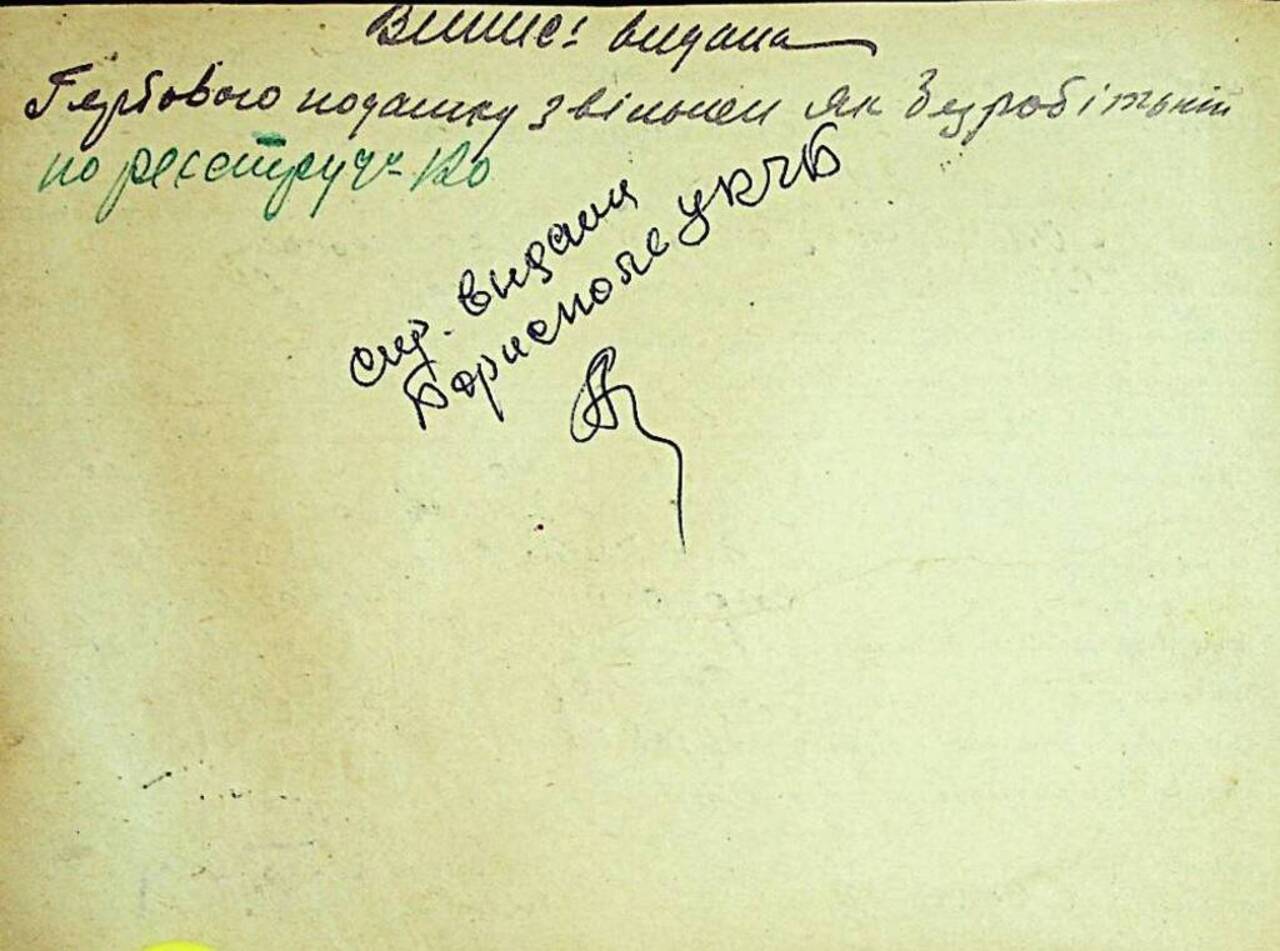 Випис: видана
Гербового податку звільнен як Безробітний
по реєстру
спр. видана
Борисполе